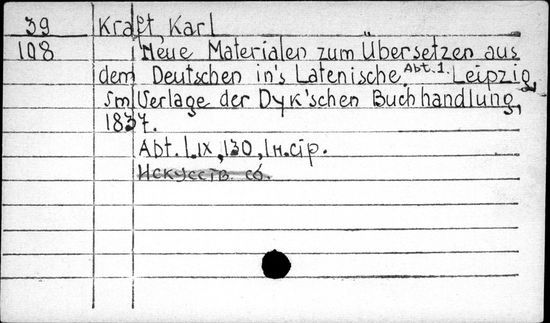 39 Kraft, Karl
108 Neue Materialen zum Übersetzen aus
dem Deutschen in's Latenische. Abt. 1. Leipzig,
Im Verlage der Dyk'schen Buchhandlung,
1837.
Abt. 1. IX, 130, 1 н. стр.
Искусств. сб.